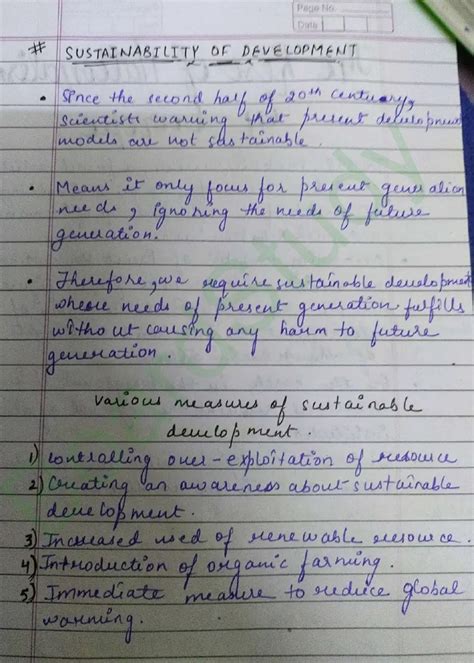 Page No.
Date
# SUSTAINABILITY OF DEVELOPMENT
• Since the second half of 20th century,
scientists warning that present development
models are not sustainable.
• Means it only focus for present generation
needs, ignoring the needs of future
generation.
• Therefore, we require sustainable development
where needs of present generation fulfills
without causing any harm to future
generation.
various measures of sustainable
development.
1) controlling over-exploitation of resource
2) Creating an awareness about sustainable
development.
3) Increased used of renewable resource.
4) Introduction of organic farming.
5) Immediate measure to reduce global
warming.